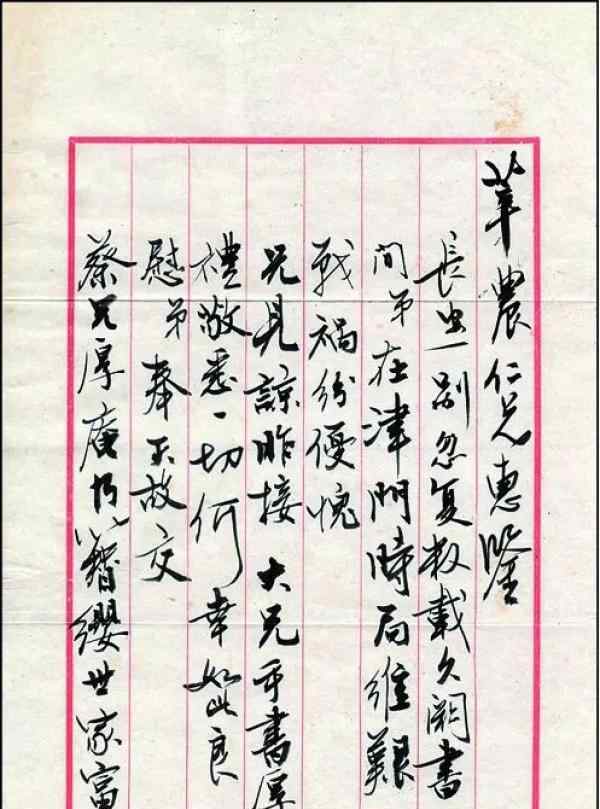 莘農仁兄惠鑒
長一別忽复数載久闕書
間弟在津門時局維艱
戰禍紛擾愧
兄見諒昨接大兄手書厚
禮敬悉一切何幸如此良
慰弟奉天故交
蔡兄厚庵乃簪纓世家富